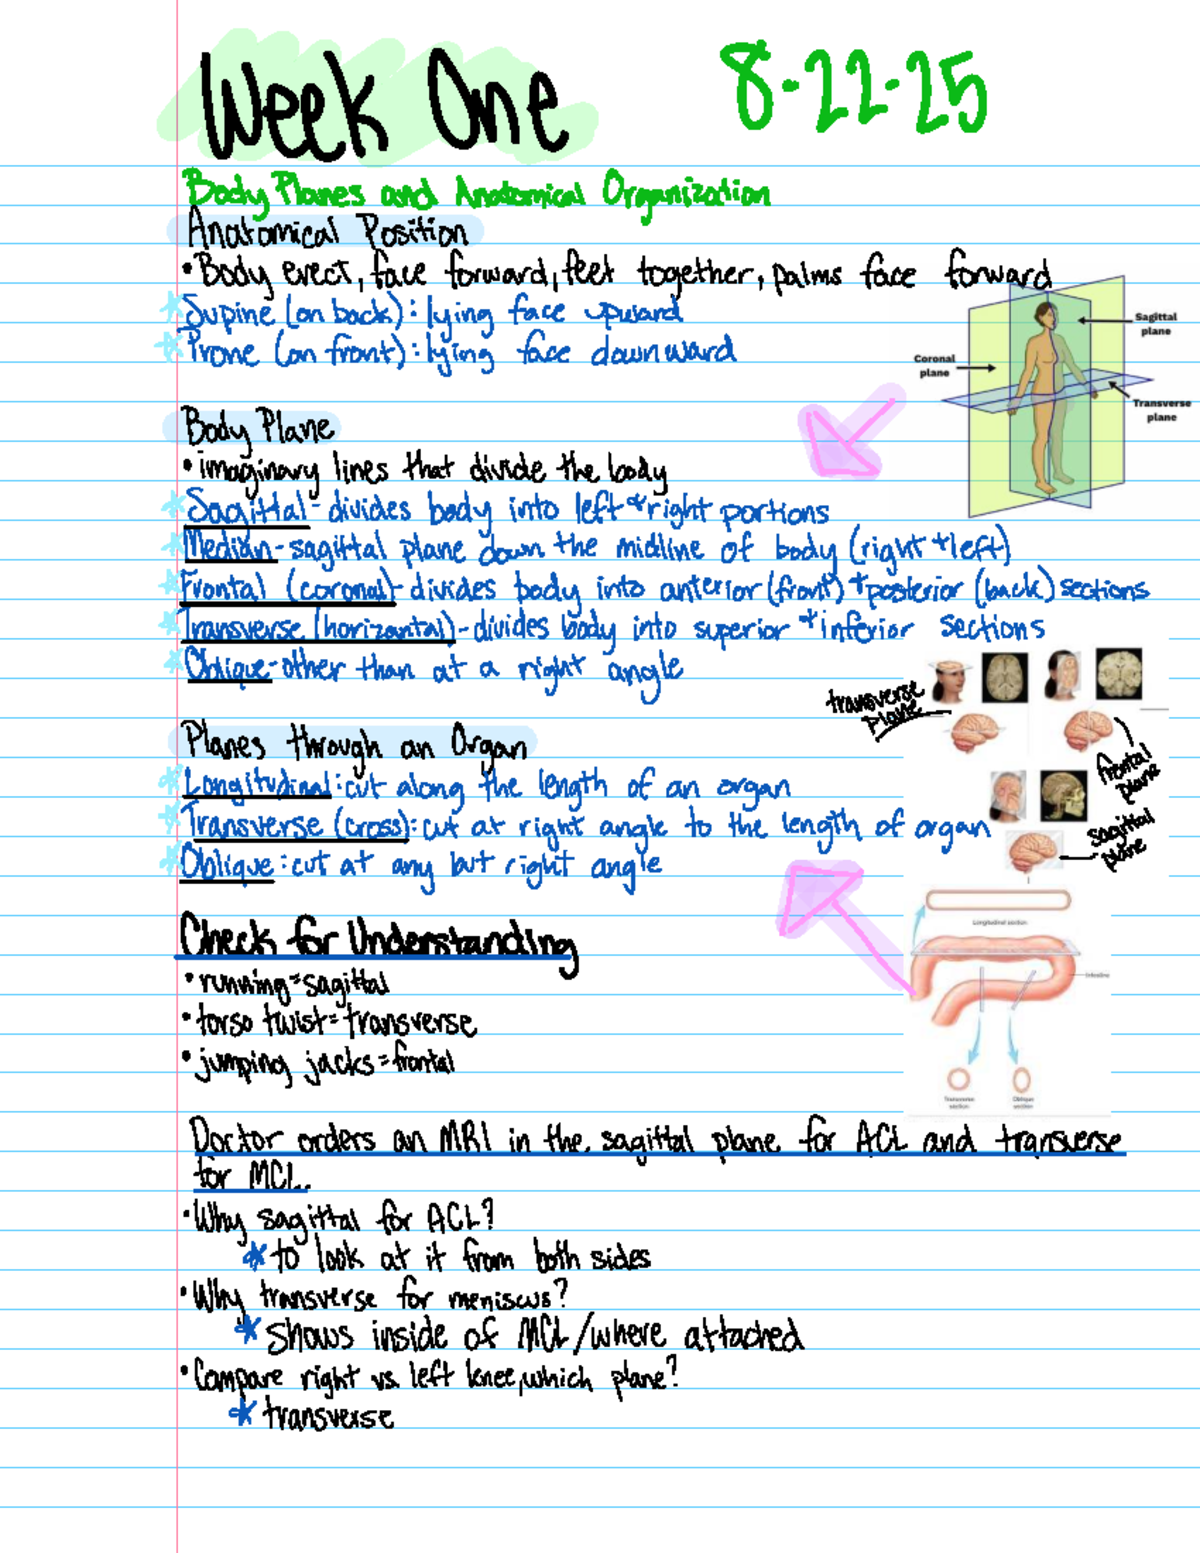 Week One 8-22-25
Body Planes and Anatomical Organization
Anatomical Position
• Body erect, face forward, feet together, palms face forward
* Supine (on back): lying face upward
* Prone (on front): lying face downward
Sagittal plane
Coronal plane
Transverse plane
Body Plane
• imaginary lines that divide the body
* Sagittal - divides body into left + right portions
* Median - sagittal plane down the midline of body (right + left)
* Frontal (coronal) - divides body into anterior (front) + posterior (back) sections
* Transverse (horizantal) - divides body into superior + inferior sections
* Oblique - other than at a right angle
transverse plane
frontal plane
sagittal plane
Planes through an Organ
* Longitudinal: cut along the length of an organ
* Transverse (cross): cut at right angle to the length of organ
* Oblique: cut at any but right angle
Longitudinal section
Intestine
Transverse section
Oblique section
Check for Understanding
• running = sagittal
• torso twist = transverse
• jumping jacks = frontal
Doctor orders an MRI in the sagittal plane for ACL and transverse
for MCL.
• Why sagittal for ACL?
* to look at it from both sides
• Why transverse for meniscus?
* shows inside of MCL/where attached
• Compare right vs. left knee, which plane?
* transverse